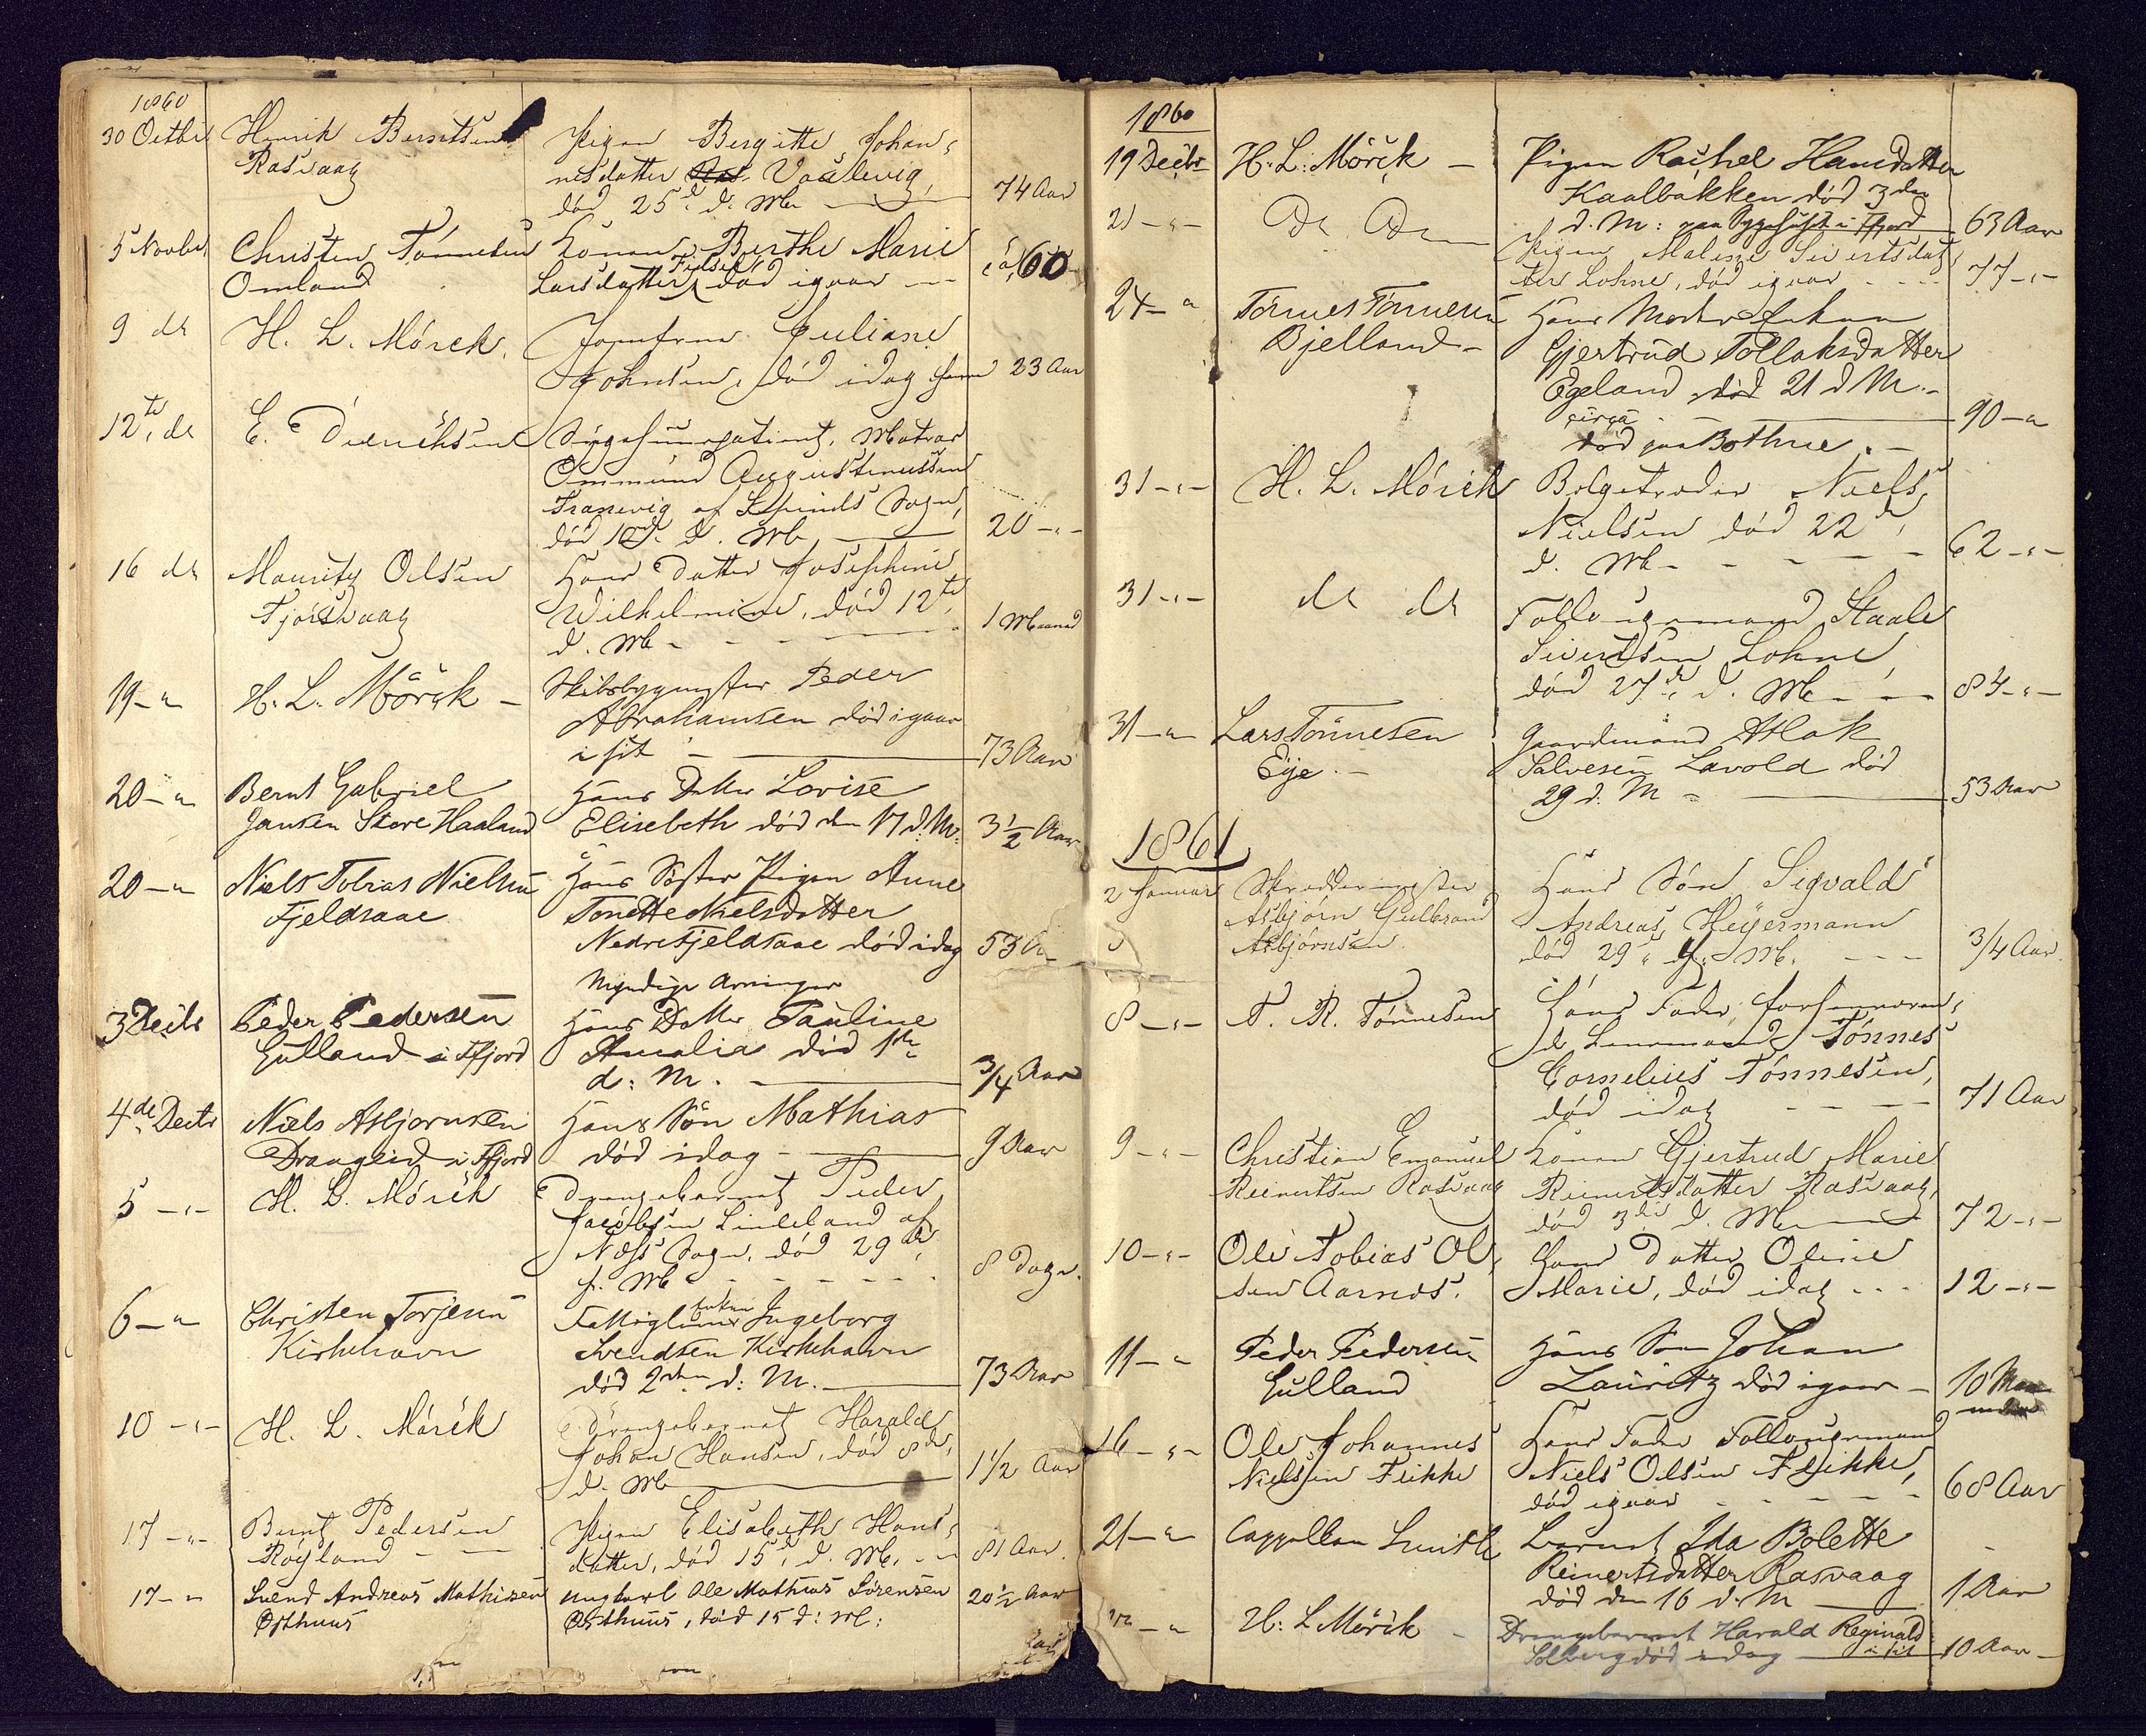 1860
30 Octbr Henrik Berntsen Pigen Bergitte Johan,
Rasvaag nesdatter Vaalevig,
død 25d. d. Md. 74 Aar
5 Novbr Christen Tönnesen Konen Berthe Marie
Omland Larsdatter død igaar 60
9 do H. L. Mörck. Jomfrue Juliane
Johnsen, død idag 23 Aar
12te do E. Dierichsen Sygehuuspatient, Matros
Ommund Augustinussen
Tranevig af Sogn,
død d. Md. 20 -"-
16 do Mauritz Olsen Hans Datter Josephine
Fjörsvaag Wilhelmine, død 12te
d. Md. 1 Maaned
19 -" H. L. Mörck - Skibsbygmester Peder
Abrahamsen død igaar
73 Aar
20 -" Bernt Gabriel Hans Datter Lovise
Jansen Store Haaland Elisebeth død den 17 d. M. 3 1/2 Aar
20 -" Niels Tobias Nielsen Hans Søster Pigen Anne
Fjeldsaae Tonette Nielsdatter
Nedre Fjeldsaae død idag 53 A
Myndige Arvinger
3 Decbr Peder Pedersen Hans Datter Pauline
Gulland i Ffjord Amalia død 1ste
d: M. 3/4 Aar
4de Decbr Niels Asbjornsen Hans Søn Mathias
Drangeid i Ffjord død idag 9 Aar
5 -"- H. L. Mörck Drengebarnet Peder
Jacobsen Lindeland af
Næss Sogn, død 29de
f. Md. 8 Dage.
6 -" Christen Torjesen Fattiglem Enken Ingeborg
Kirkehavn Svendsen Kirkehavn
død 2den d: M. 73 Aar
10 -"- H. L. Mörck Drengebarnet Harald
Johan Hansen, død 8de,
d. Md. 1 1/2 Aar
17 -"- Bernt Pedersen Pigen Elisabeth Hans,
Röyland datter, død 15d, d. Md. 81 Aar.
17 -" Svend Andreas Mathisen ungkarl Ole Mathias Sörensen 20 1/2 Aar
Østhuus Østhuus, død 15 d: M:
1860
19 Decbr H. L. Mörck - Pigen Rachel Hansdatter
Kaalbakken død 3den
d. M: paa Sygehuset i Ffjord 63 Aar
21 -"- Do Do Pigen Malene Sivertsdat
ter Lohne, død igaar 77 -"-
24 -" Tönnes Tönnesen Hans Moder Enken
Bjelland - Gjertrud Tollaksdatter
Egeland død 21 d M. -
circa 90 -"
død paa Bothne. -
31 -"- H. L. Mörck Bolgetræder Niels
Nielsen død 22de,
d. Md. 62 -"-
31 -"- do do Føllougsmand Staale
Sivertsen Lohne,
død 27de d. Md. 84 -"-
31 -" Lars Tönnesen Gaardmand Atlak
Eje. - Salvesen Lavold død
29 d: M 53 Aar
1861
2 Januar Skreddermester Hans Søn Sigvald
Asbjörn Gulbrand Andreas Heyermann
Asbjörnsen død 29 Md. 3/4 Aar.
8 -"- T. R. Tönnesen Hans Fader, forhenværen,
de Lensmand Tönnes
Cornelius Tönnesen,
død idag 71 Aar
9 -"- Christian Emanuel Konen Gjertrud Marie
Reinertsen Rasvaag Reinertsdatter Rasvaag,
død 3die d. Md. 72 -"-
10 -"- Ole Tobias Ol, Hans Datter Oline
sen Aarnes. Marie, død idag 12 -"-
11 -" Peder Pedersen Hans Søn Johan
Gulland Lauritz død igaar - 10 Maa
neder
16 -"- Ole Johannes Hans Fader Føllougsmand
Nielsen Flikke Niels Olsen Flikke,
død igaar 68 Aar
21 -" Cappellan Smith barnet Ida Bolette
Reinertsdatter Rasvaag
død den 16 d. M 1 Aar
-" H: L Mörck - Drengebarnet Harald Reginald
Solberg død idag 10 Aar